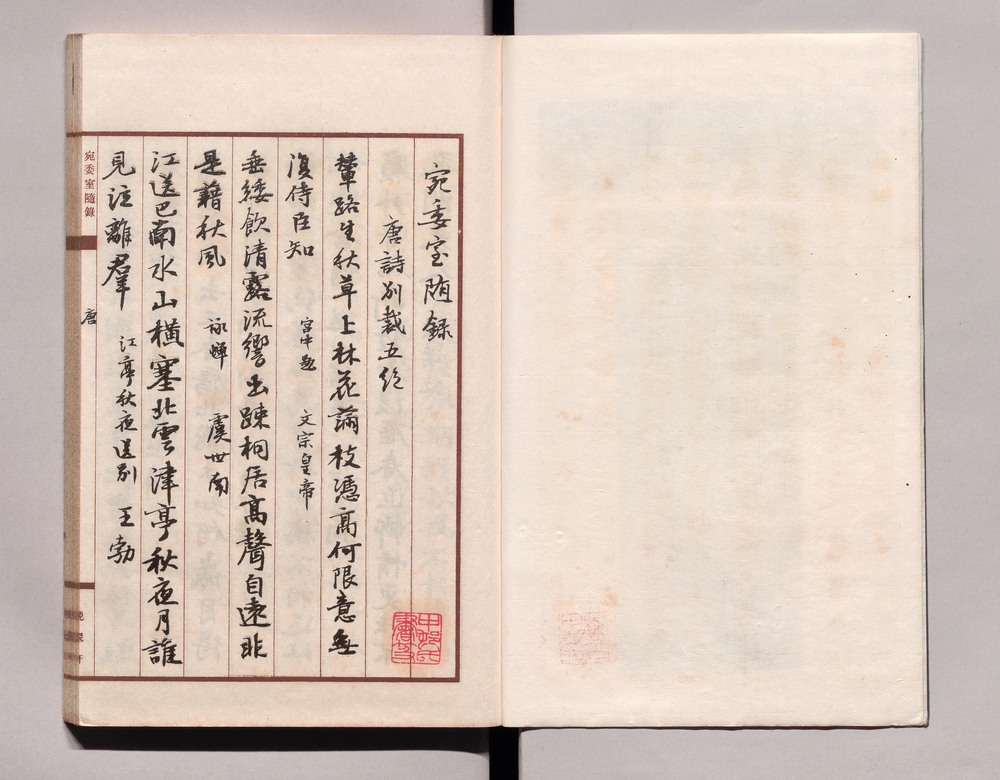 宛委室随録
唐詩別裁五絶
輦路生秋草上林花滿枝憑高何限意無
復侍臣知 宮中題 文宗皇帝
垂緌飲清露流響出踈桐居高聲自遠非
是藉秋風 詠蟬 虞世南
江送巴南水山橫塞北雲津亭秋夜月誰
見泣離羣 江亭秋夜送別 王勃
宛委室隨錄
唐